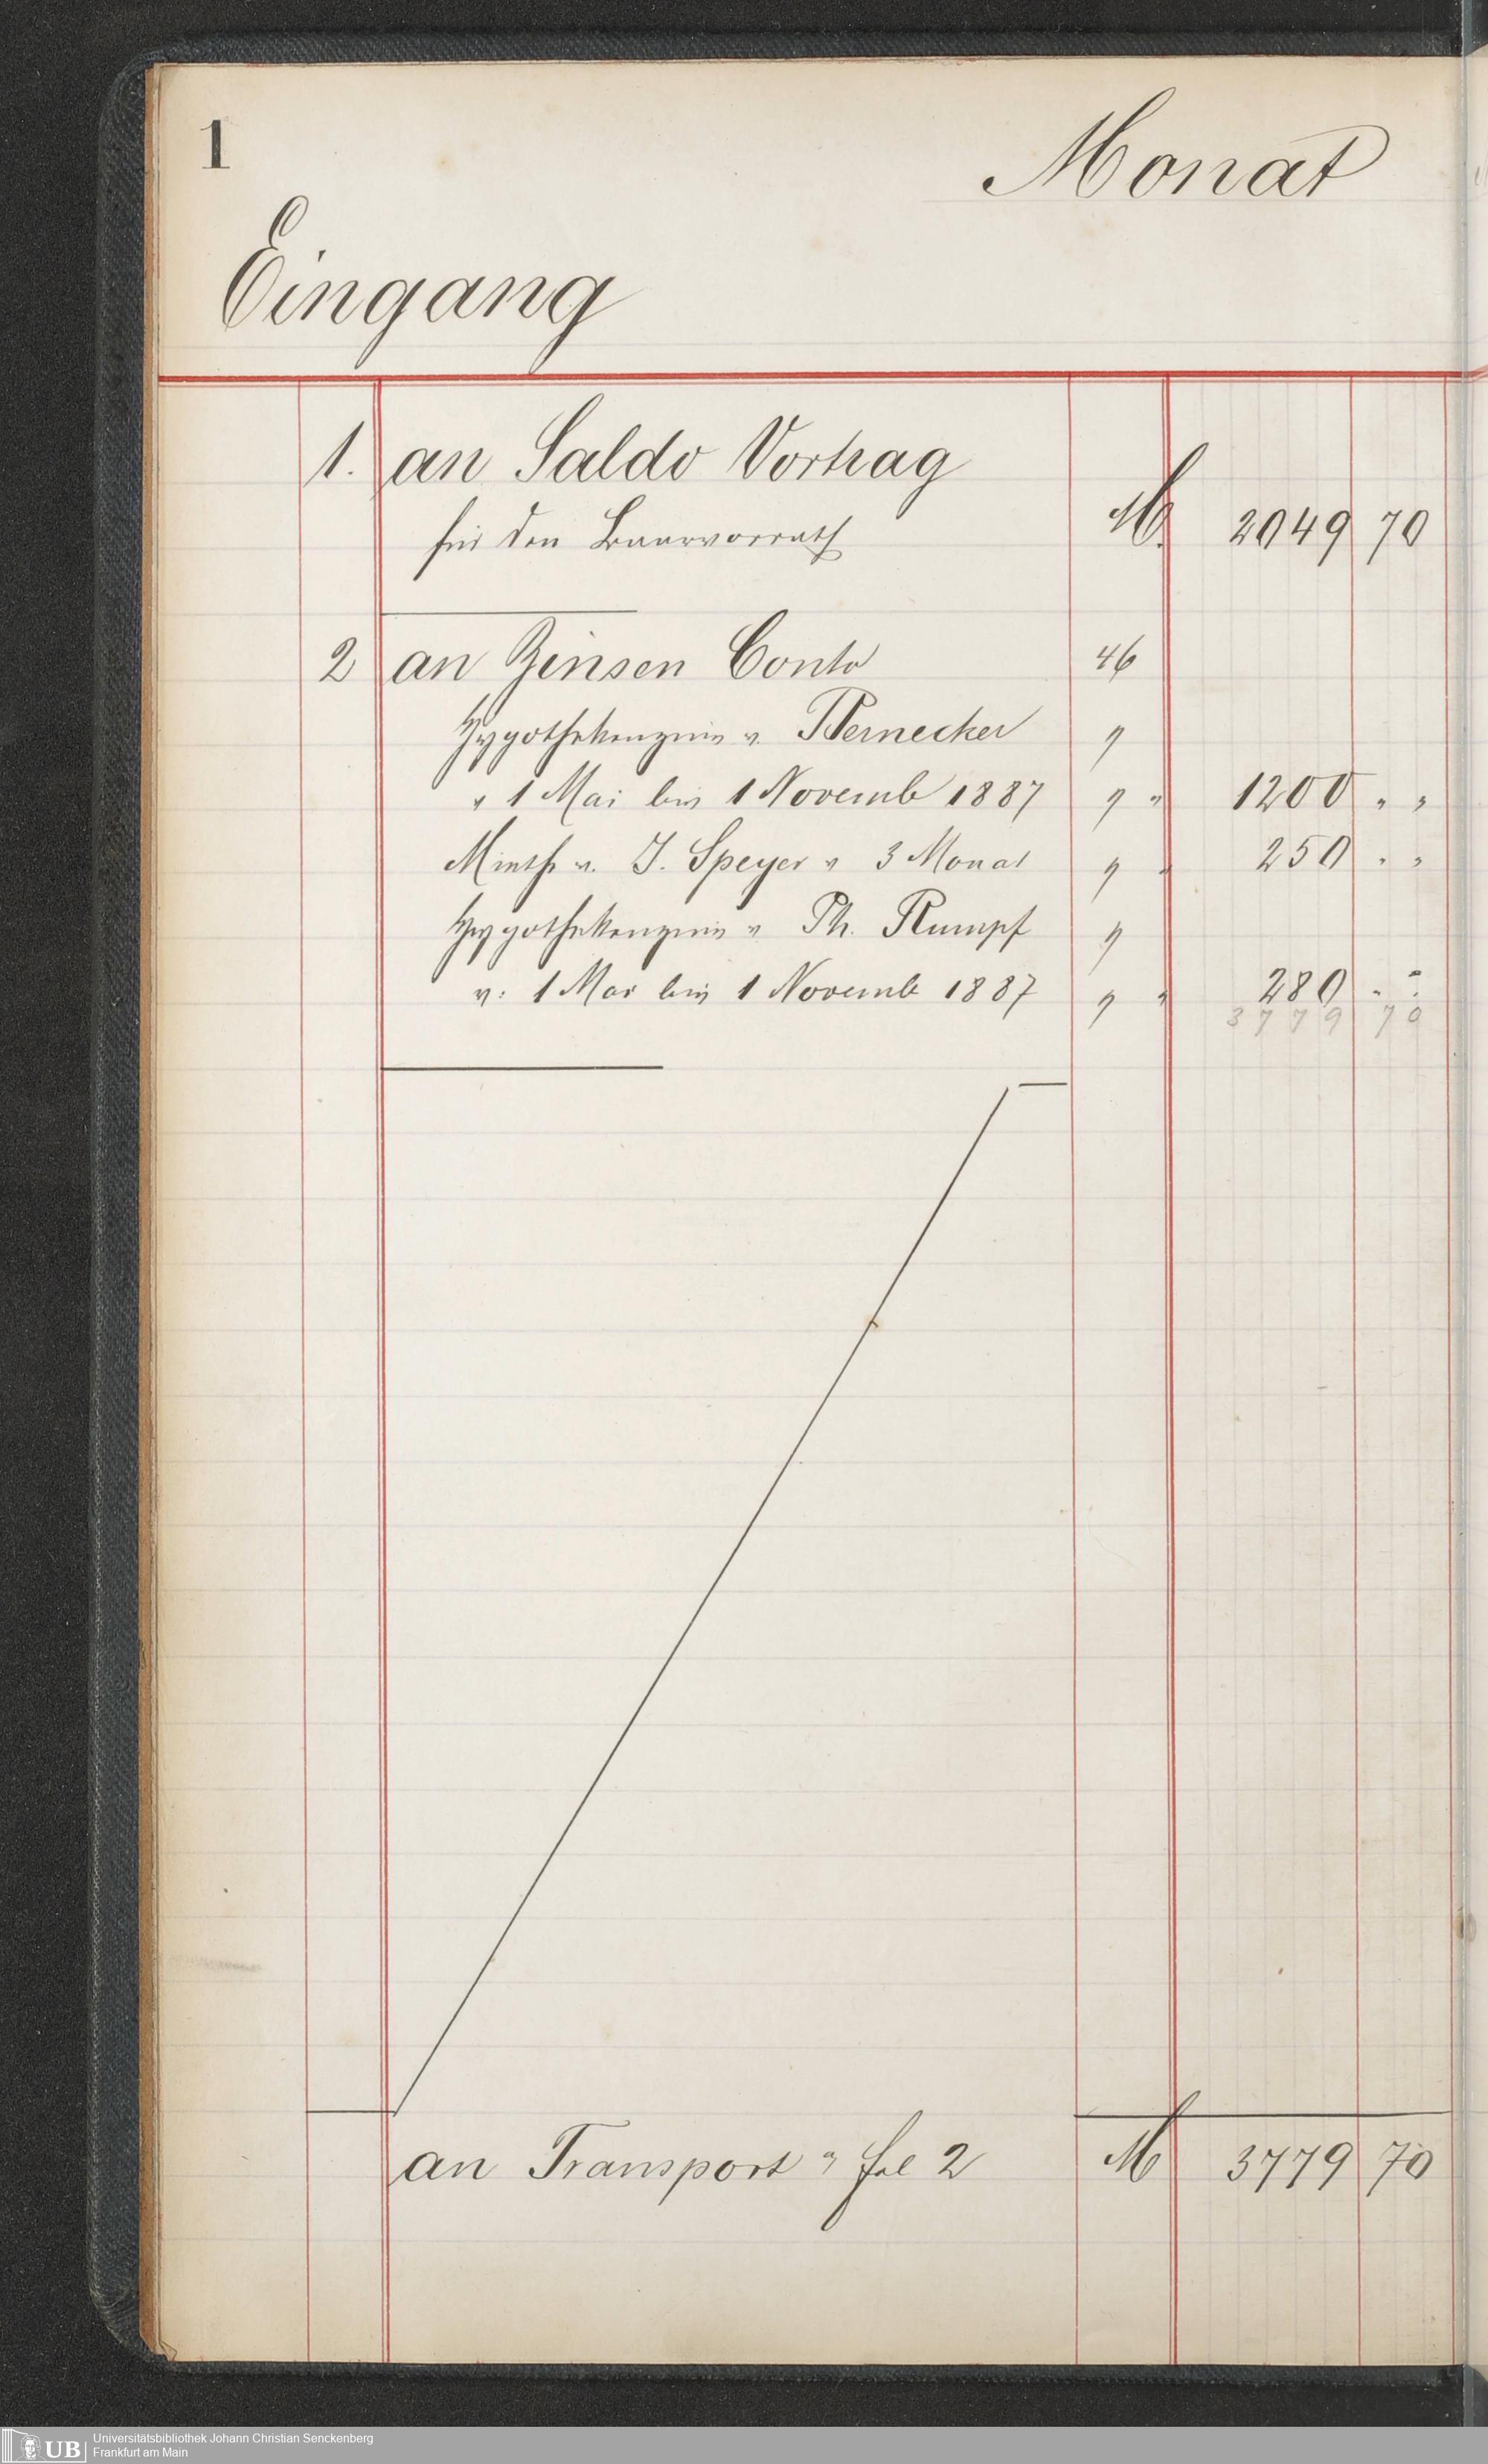 1
Monat
Eingang
1. an Saldo Vortrag
für den Baarvorrath M. 2049 70
2 an Zinsen Conto 46
Hypothekenzins v. Bernecker "
v 1 Mai bis 1 Novemb 1887 " " 1200 " "
Miethe v. J. Speyer v 3 Monat " " 250 " "
Hypothekenzins v. Ph. Rumpf "
v. 1 Mai bis 1 Novemb 1887 " " 280 " "
3779 70
an Transport a fol 2 M 3779 70
UB Universitätsbibliothek Johann Christian Senckenberg
Frankfurt am Main